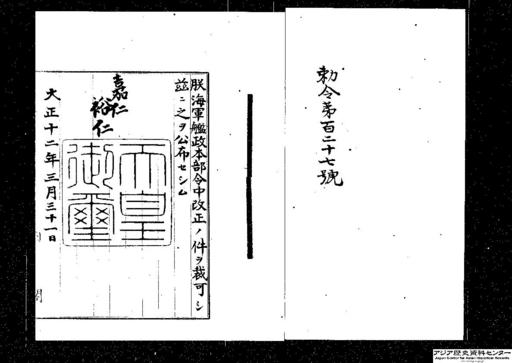 勅令第百二十七號
朕海軍艦政本部令中改正ノ件ヲ裁可シ
茲ニ之ヲ公布セシム
嘉仁
裕仁
天皇御璽
大正十二年三月三十一日
アジア歴史資料センター
Japan Center for Asian Historical Records